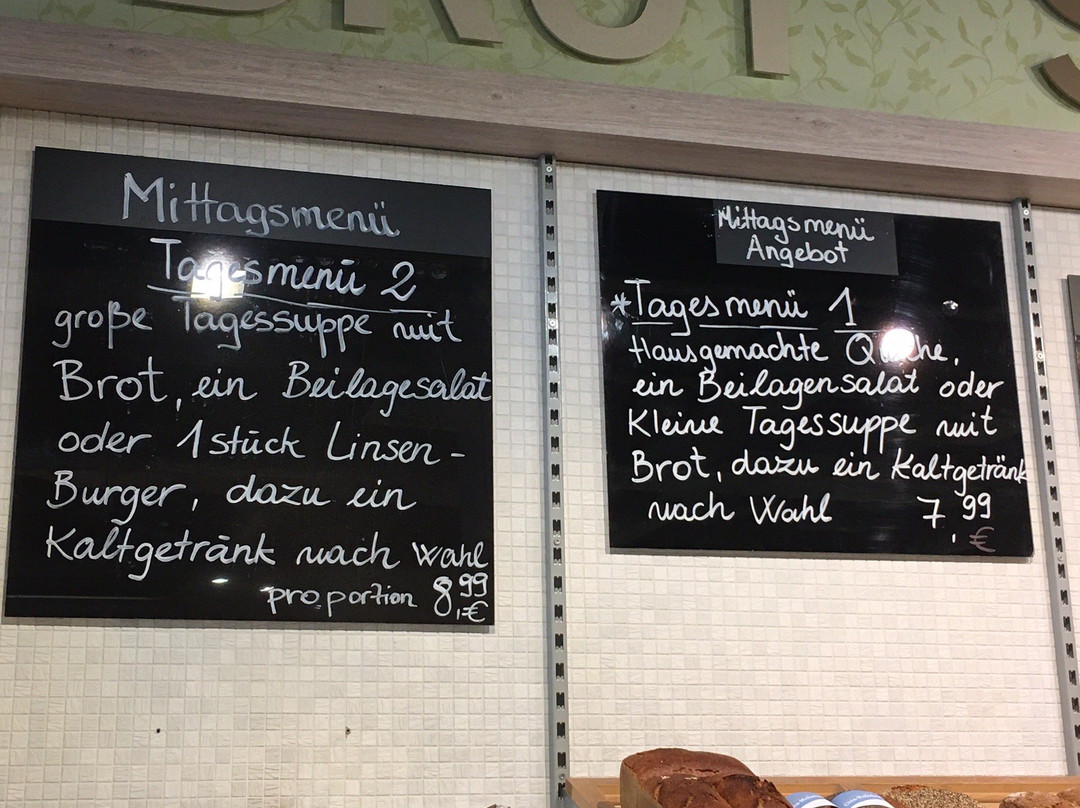 BROT S
Mittagsmenü
Tagesmenü 2
große Tagessuppe mit
Brot, ein Beilagesalat
oder 1 stück Linsen-
Burger, dazu ein
Kaltgetränk nach Wahl
pro portion 8,99 €
Mittagsmenü
Angebot
*Tagesmenü 1
Hausgemachte Quiche,
ein Beilagensalat oder
Kleine Tagessuppe mit
Brot, dazu ein Kaltgetränk
nach Wahl 7,99
€